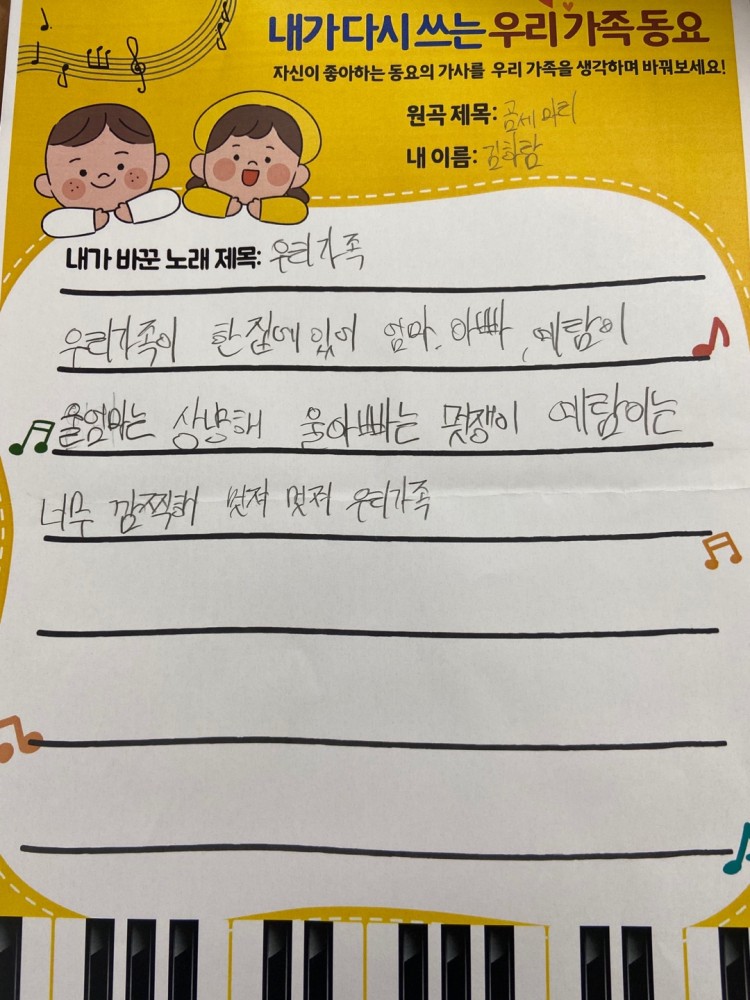 내가 다시 쓰는 우리 가족 동요
자신이 좋아하는 동요의 가사를 우리 가족을 생각하며 바꿔보세요!
원곡 제목: 곰세마리
내 이름: 김하람
내가 바꾼 노래 제목: 우리가족
우리가족이 한집에있어 엄마, 아빠, 예람이
울엄마는 상냥해 울아빠는 멋쟁이 예람이는
너무 깜찍해 멋져 멋져 우리가족